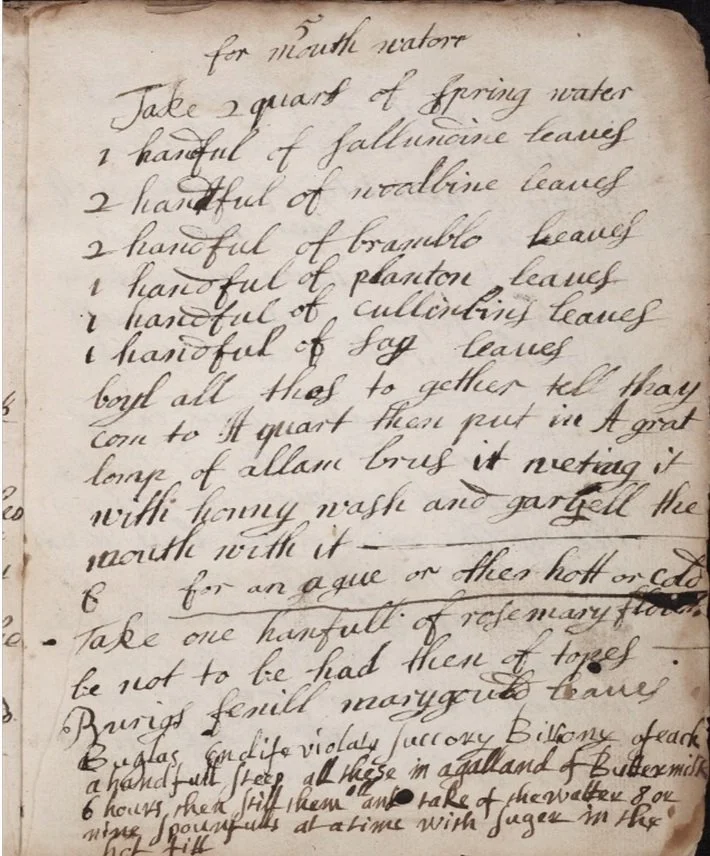 5
for mouth watore
Take 2 quars of spring water
1 handful of sallundine leaves
2 handful of woodbine leaves
2 handful of bramblo leaves
1 handful of planton leaves
1 handful of cullinbins leaves
1 handful of sag leaves
boyl all thes to gether tell thay
com to A quart then put in A grat
lomp of allam brus it weting it
with honny wash and gargell the
mouth with it
6 for an ague or other hott or cold
Take one hanfull of rosemary
be not to be had then of topes
fenill marygould leaves
Buglas Endife violats succory of each
a handfull steep all these in a galland of Buttermilk
6 hours then still them and take of the watter 8 or
nine spounfulls at a time with suger in the
hot fitt